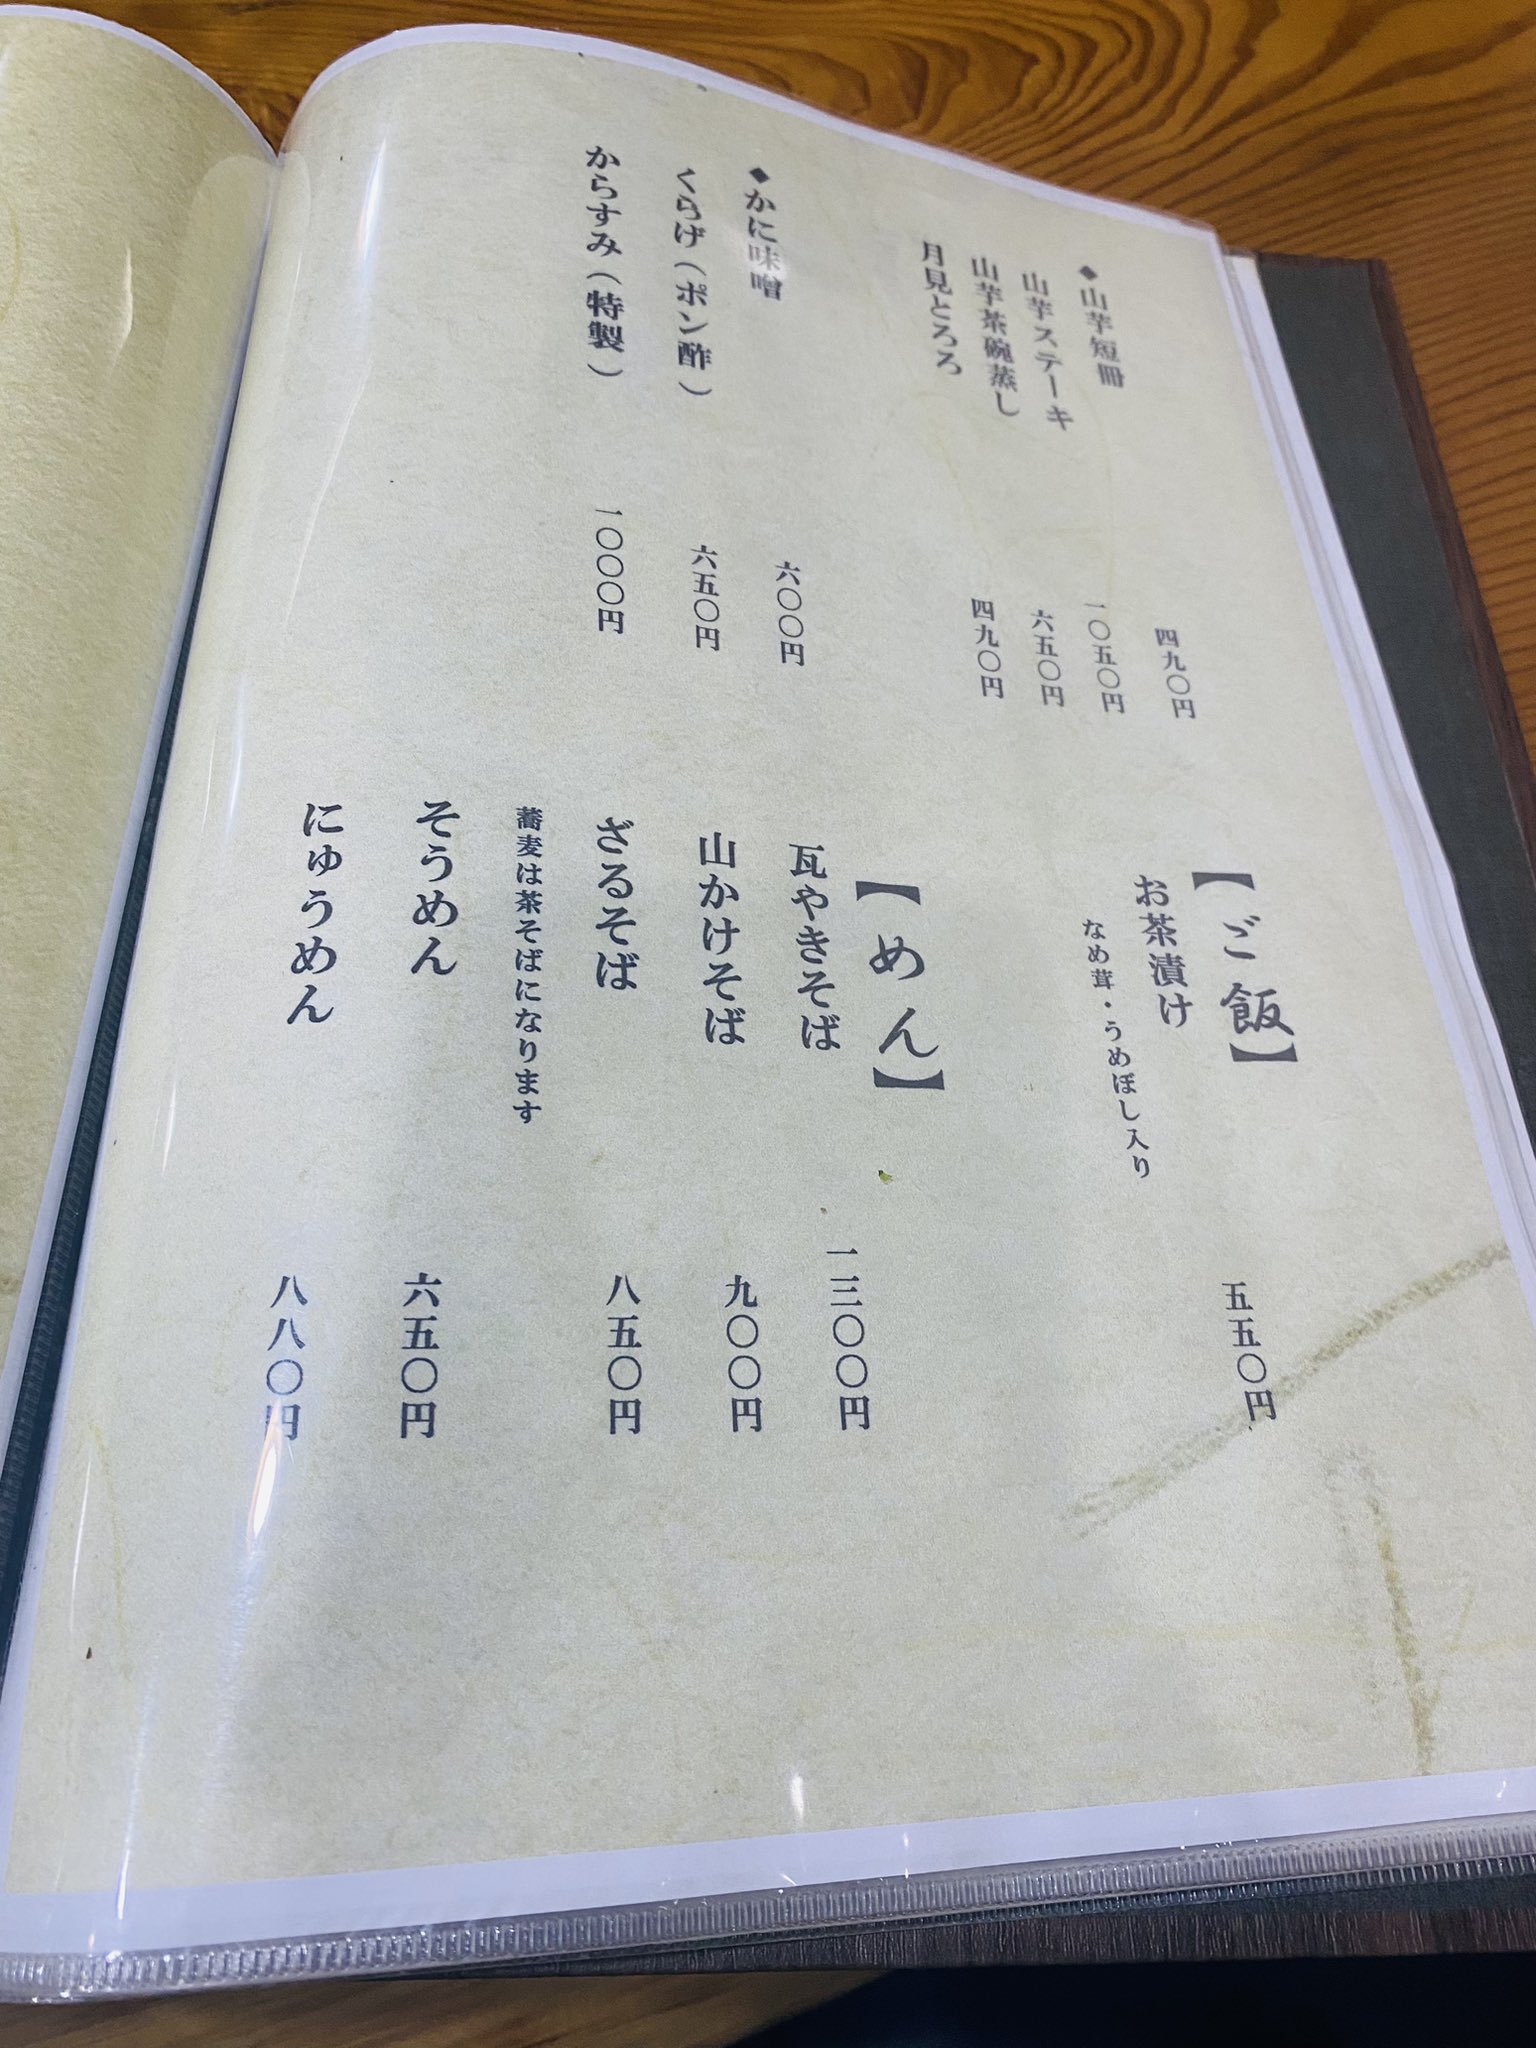 ◆山芋短冊 四九〇円
山芋ステーキ 一〇五〇円
山芋茶碗蒸し 六五〇円
月見とろろ 四九〇円
◆かに味噌 六〇〇円
くらげ（ポン酢） 六五〇円
からすみ（特製） 一〇〇〇円
【ご飯】
お茶漬け 五五〇円
なめ茸・うめぼし入り
【めん】
瓦やきそば 一三〇〇円
山かけそば 九〇〇円
ざるそば 八五〇円
蕎麦は茶そばになります
そうめん 六五〇円
にゅうめん 八八〇円